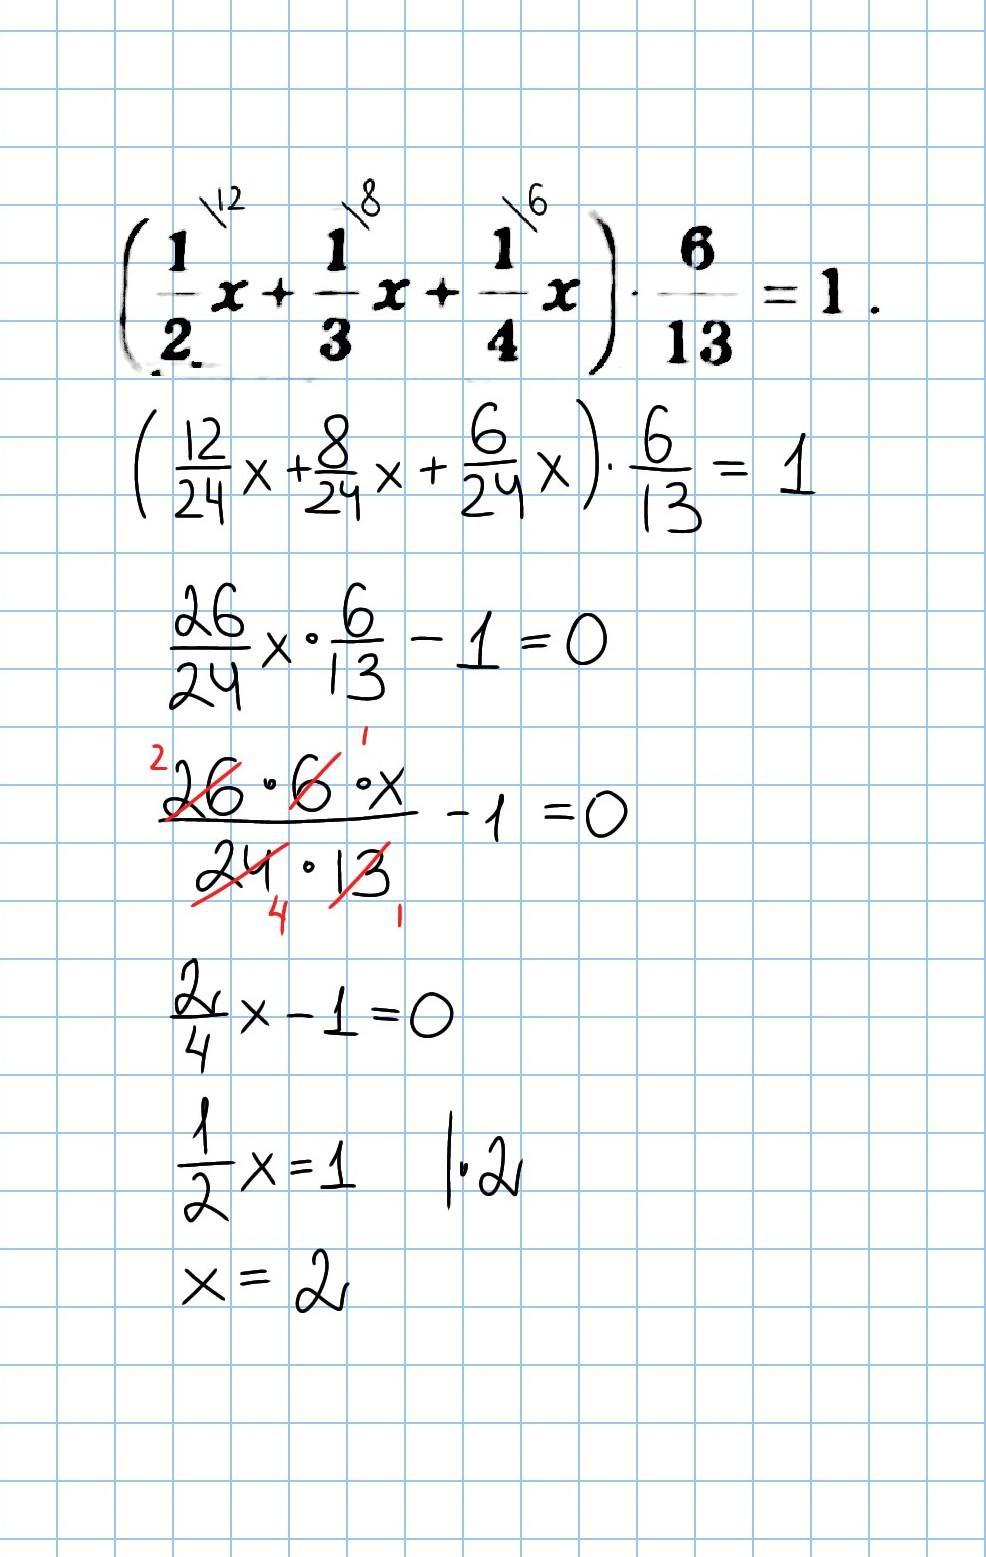 (1/2 \12 x + 1/3 \8 x + 1/4 \6 x) · 6/13 = 1.
(12/24 x + 8/24 x + 6/24 x) · 6/13 = 1
26/24 x · 6/13 - 1 = 0
2 26 · 6 1 · x / 24 4 · 13 1 - 1 = 0
2/4 x - 1 = 0
1/2 x = 1 | · 2
x = 2